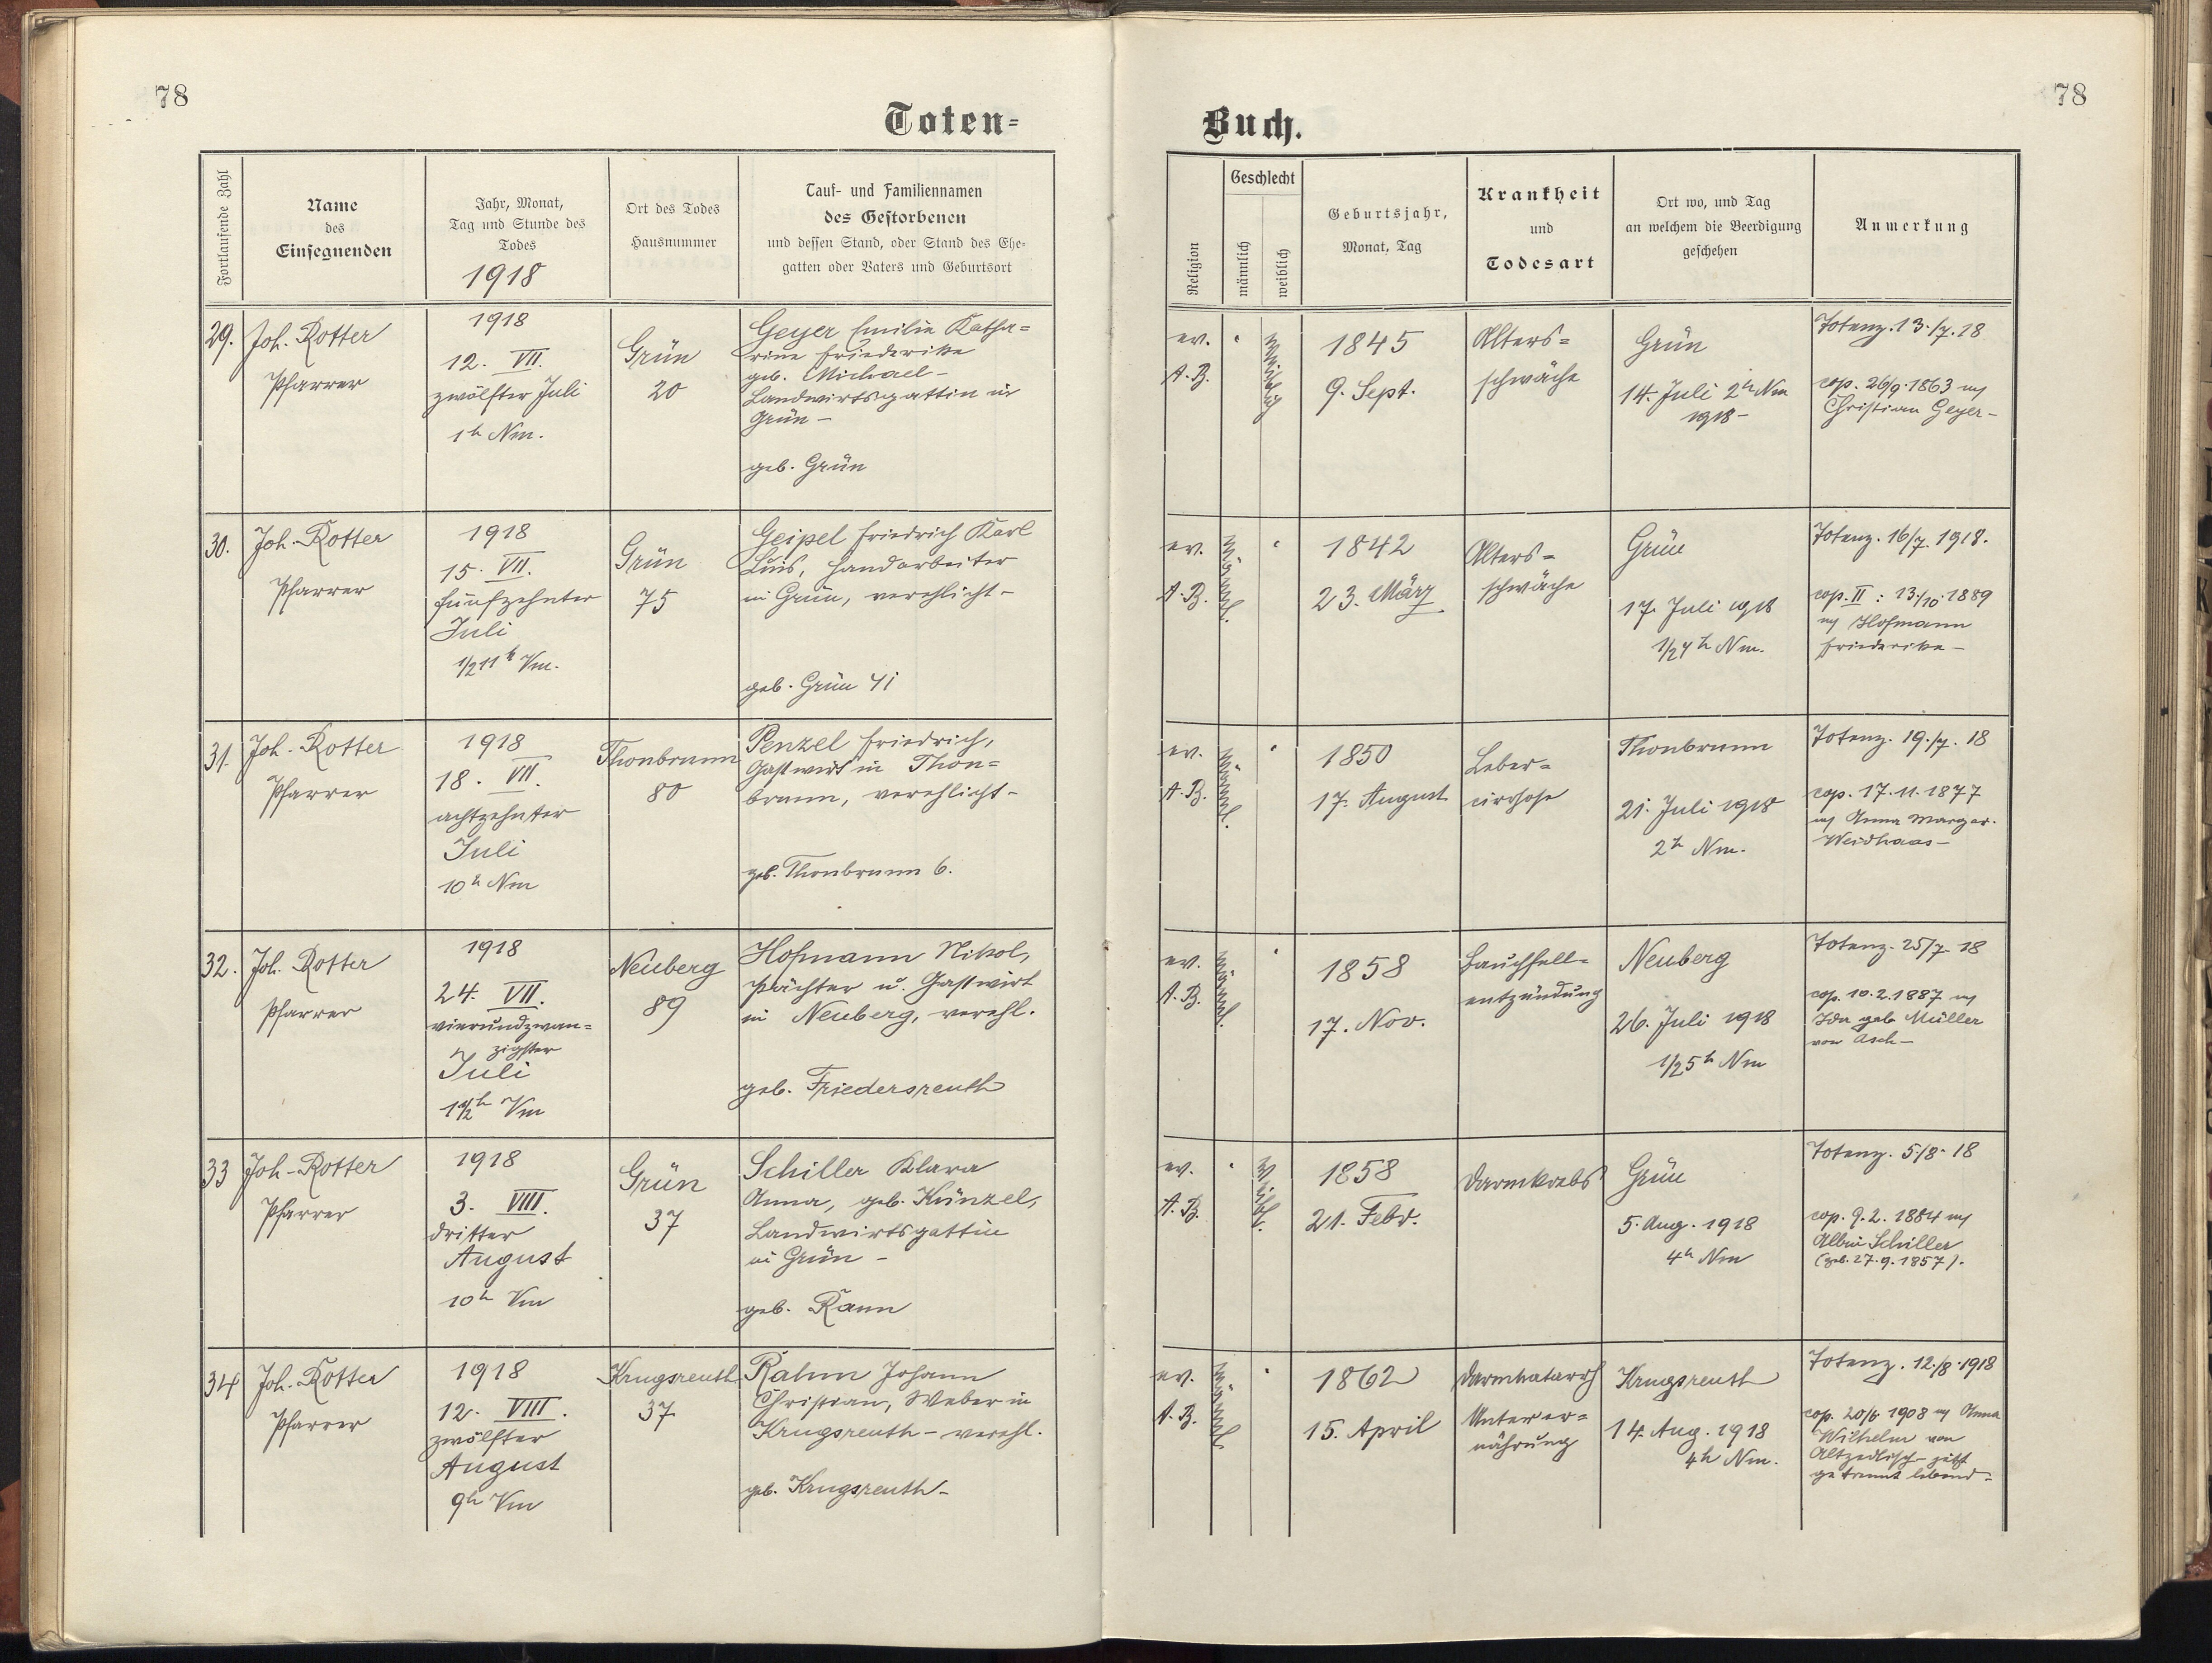 78
Toten-
Fortlaufende Zahl
Name
des
Einsegnenden
Jahr, Monat,
Tag und Stunde des
Todes
1918
Ort des Todes
Hausnummer
Tauf- und Familiennamen
des Gestorbenen
und dessen Stand, oder Stand des Ehe-
gatten oder Vaters und Geburtsort
29.
Joh. Rotter
Pfarrer
1918
12. VII.
zwölfter Juli
1h Nm.
Grün
20
Geyer Emilie Katha-
rine Friederike
geb. Michael -
Landwirtsgattin in
Grün -
geb. Grün
30.
Joh. Rotter
Pfarrer
1918
15. VII.
fünfzehnter
Juli
1/2 11h Vm.
Grün
75
Geipel Friedrich Karl
Luis, Handarbeiter
in Grün, verehlicht -
geb. Grün 41
31.
Joh. Rotter
Pfarrer
1918
18. VII.
achtzehnter
Juli
10h Nm
Thonbrunn
80
Penzel Friedrich,
Gastwirt in Thon=
brunn, verehlicht -
geb. Thonbrunn 6.
32.
Joh. Rotter
Pfarrer
1918
24. VII.
vierundzwan=
zigster
Juli
Vm
Neuberg
89
Hofmann Nikol,
Pächter u. Gastwirt
in Neuberg, verehl.
geb. Friedersreuth
33
Joh. Rotter
Pfarrer
1918
3. VIII.
dritter
August
10h Vm
Grün
37
Schiller Klara
Anna, geb. Künzel,
Landwirtsgattin
in Grün -
geb. Rann
34
Joh. Rotter
Pfarrer
1918
12. VIII.
zwölfter
August
9h Vm
Krugsreuth
37
Rahm Johann
Christian, Weber in
Krugsreuth - verehl.
geb. Krugsreuth -
78
Buch.
Religion
Geschlecht
männlich
weiblich
Geburtsjahr,
Monat, Tag
Krankheit
und
Todesart
Ort wo, und Tag
an welchem die Beerdigung
geschehen
Anmerkung
ev.
A. B.
weiblich
1845
9. Sept.
Alters=
schwäche
Grün
14. Juli 2h Nm
1918 -
Totenz. 13./7. 18
cop. 26/9. 1863 m
Christian Geyer -
ev.
A. B.
männl.
1842
23. März
Alters=
schwäche
Grün
17. Juli 1918
1/2 4h Nm.
Totenz. 16/7. 1918.
cop. II : 13./10. 1889
m Hofmann
Friederike -
ev.
A. B.
männl.
1850
17. August
Leber=
cirrhose
Thonbrunn
21. Juli 1918
2h Nm.
Totenz. 19./7. 18
cop. 17. 11. 1877
m Anna Margar.
Weidhaas -
ev.
A. B.
männl.
1858
17. Nov.
Bauchfell=
entzündung
Neuberg
26. Juli 1918
1/2 5h Nm
Totenz. 25/7. 18
cop. 10. 2. 1887 m
Ida geb Müller
von Asch -
ev.
A. B.
weibl.
1858
21. Febr.
Darmkrebs
Grün
5. Aug. 1918
4h Nm
Totenz. 5/8. 18
cop. 9. 2. 1884 m
Albin Schiller
(geb. 27. 9. 1857).
ev.
A. B.
männl.
1862
15. April
Darmkatarrh
Unterer=
nährung
Krugsreuth
14. Aug. 1918
4h Nm.
Totenz. 12./8. 1918
cop. 20/6 1908 m Anna
Wilhelm von
Altzedlisch - jetzt
getrennt lebend -